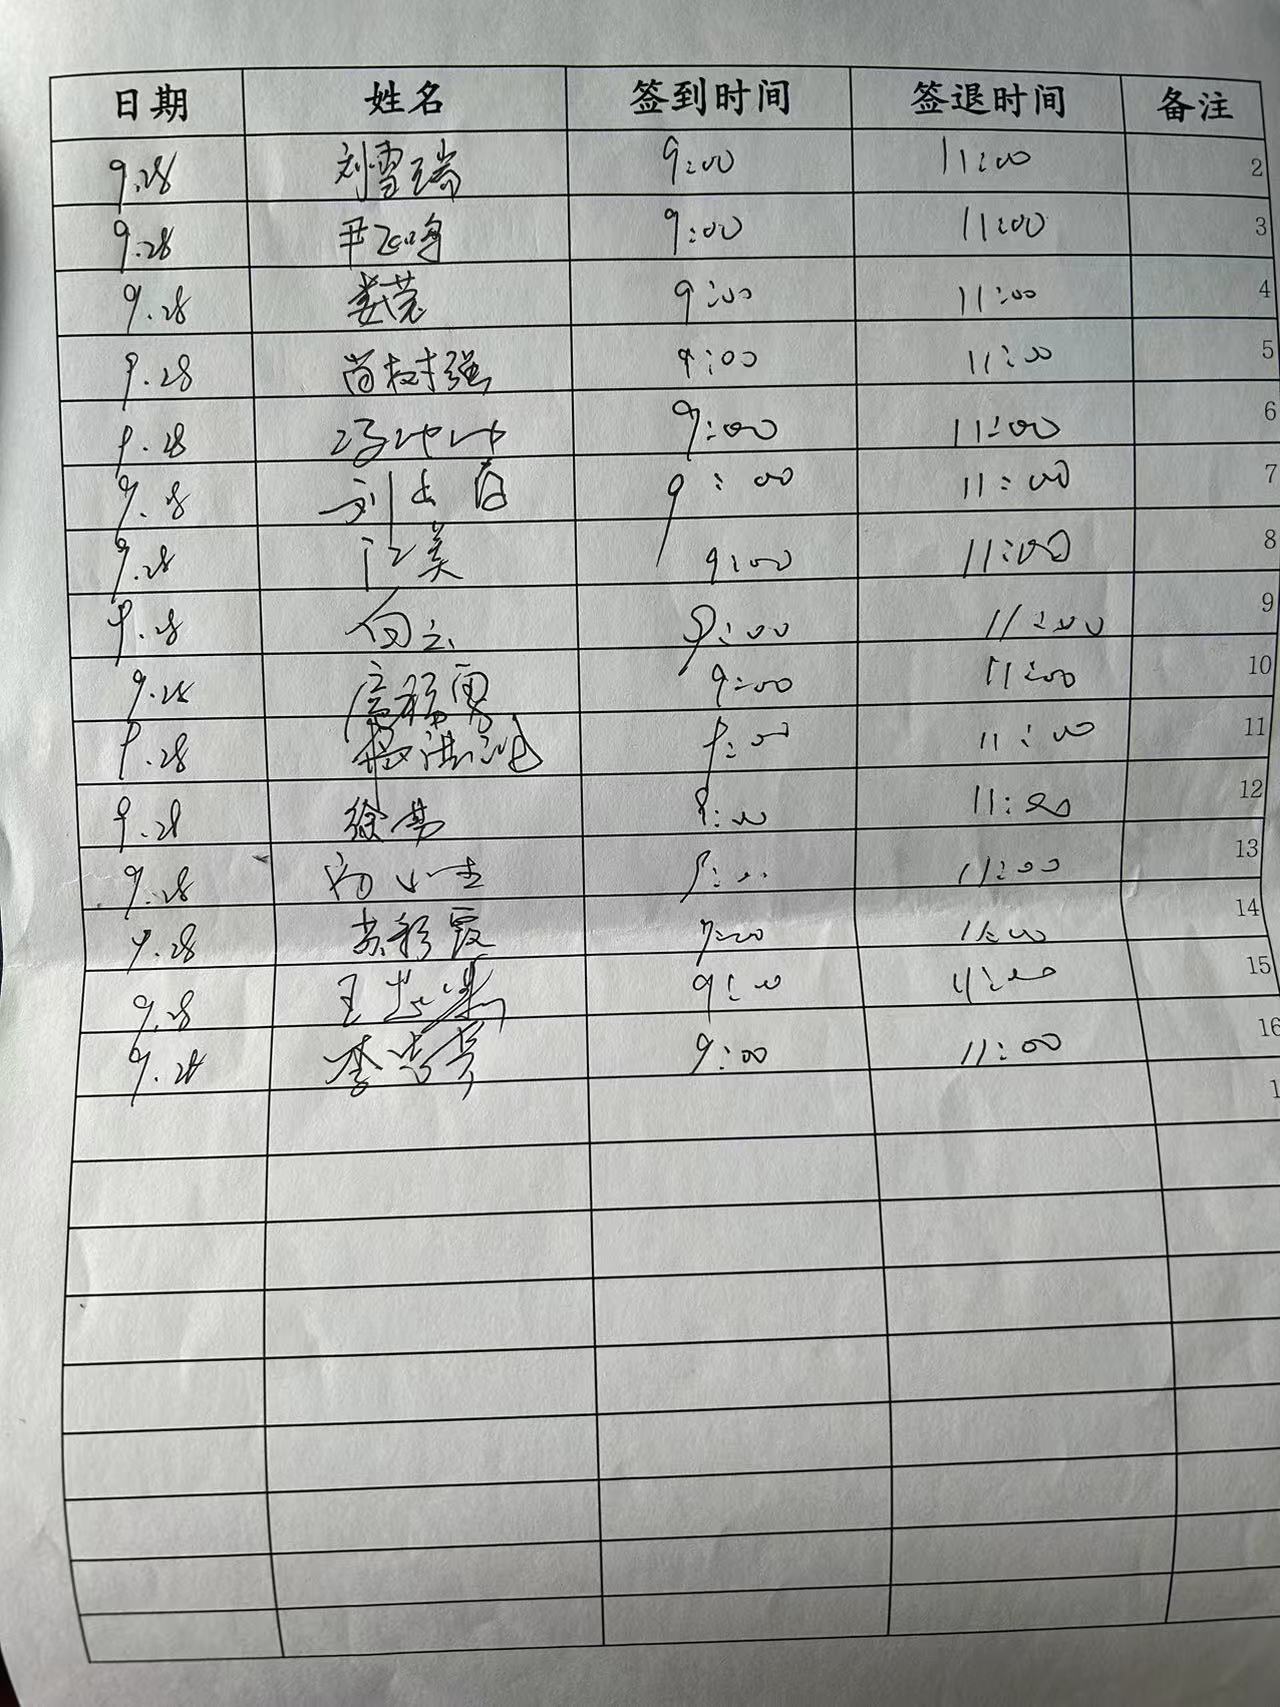 日期 姓名 签到时间 签退时间 备注
9.28 刘雪瑞 9:00 11:00 2
9.28 尹飞鸣 9:00 11:00 3
9.28 娄莞 9:00 11:00 4
9.28 尚树强 9:00 11:00 5
9.28 冯叶叶 9:00 11:00 6
9.28 9:00 11:00 7
9.28 江美 9:00 11:00 8
9.28 向云 9:00 11:00 9
9.28 9:00 11:00 10
9.28 9:00 11:00 11
9.28 徐勇 9:00 11:00 12
9.28 11:00 13
9.28 苏彩霞 9:00 11:00 14
9.28 9:00 11:00 15
9.28 9:00 11:00 16
1